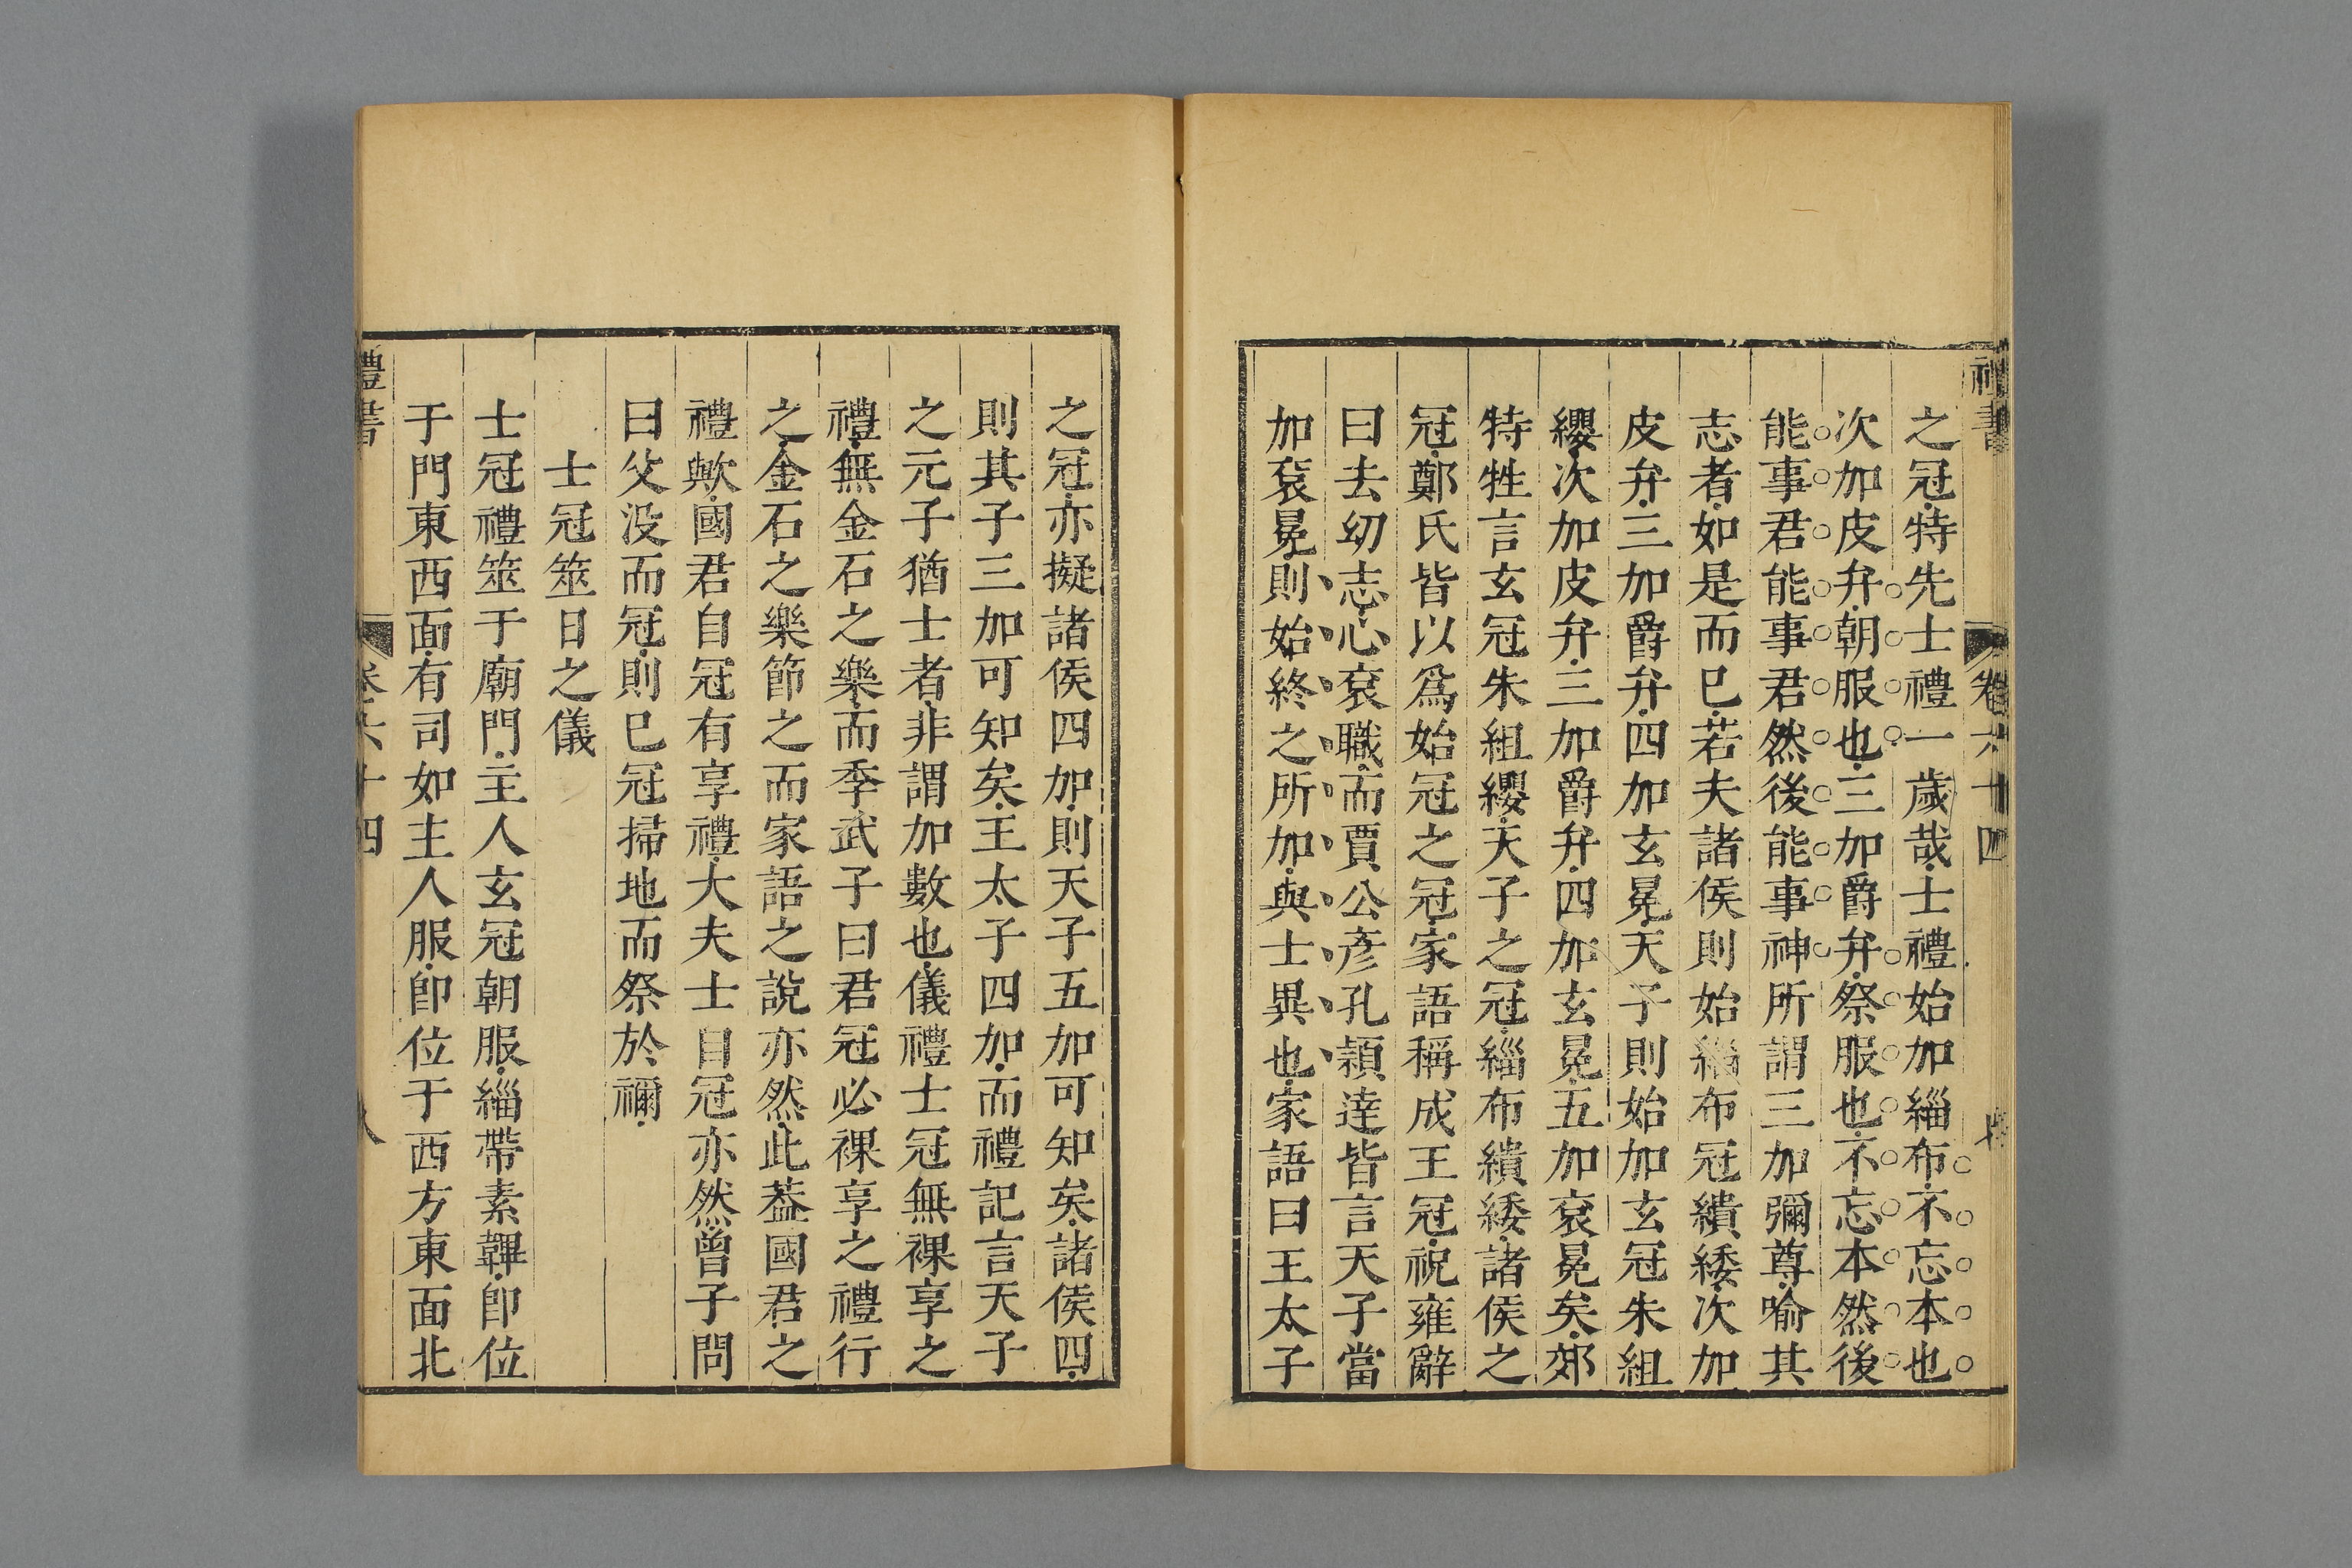 禮書
卷六十四
之冠特先士禮一歲哉士禮始加緇布不忘本也
次加皮弁朝服也三加爵弁祭服也不忘本然後
能事君能事君然後能事神所謂三加彌尊喻其
志者如是而已若夫諸侯則始緇布冠繢緌次加
皮弁三加爵弁四加玄冕天子則始加玄冠朱組
纓次加皮弁三加爵弁四加玄冕五加袞冕矣郊
特牲言玄冠朱組纓天子之冠緇布繢緌諸侯之
冠鄭氏皆以爲始冠之冠家語稱成王冠祝雍辭
曰去幼志心袞職而賈公彥孔穎達皆言天子當
加袞冕則始終之所加與士異也家語曰王太子
之冠亦擬諸侯四加則天子五加可知矣諸侯四
則其子三加可知矣王太子四加而禮記言天子
之元子猶士者非謂加數也儀禮士冠無祼享之
禮無金石之樂而季武子曰君冠必祼享之禮行
之金石之樂節之而家語之說亦然此葢國君之
禮歟國君自冠有享禮大夫士自冠亦然曾子問
曰父没而冠則已冠掃地而祭於禰
士冠筮日之儀
士冠禮筮于廟門主人玄冠朝服緇帶素韠卽位
于門東西面有司如主人服卽位于西方東面北
禮書
卷六十四
八